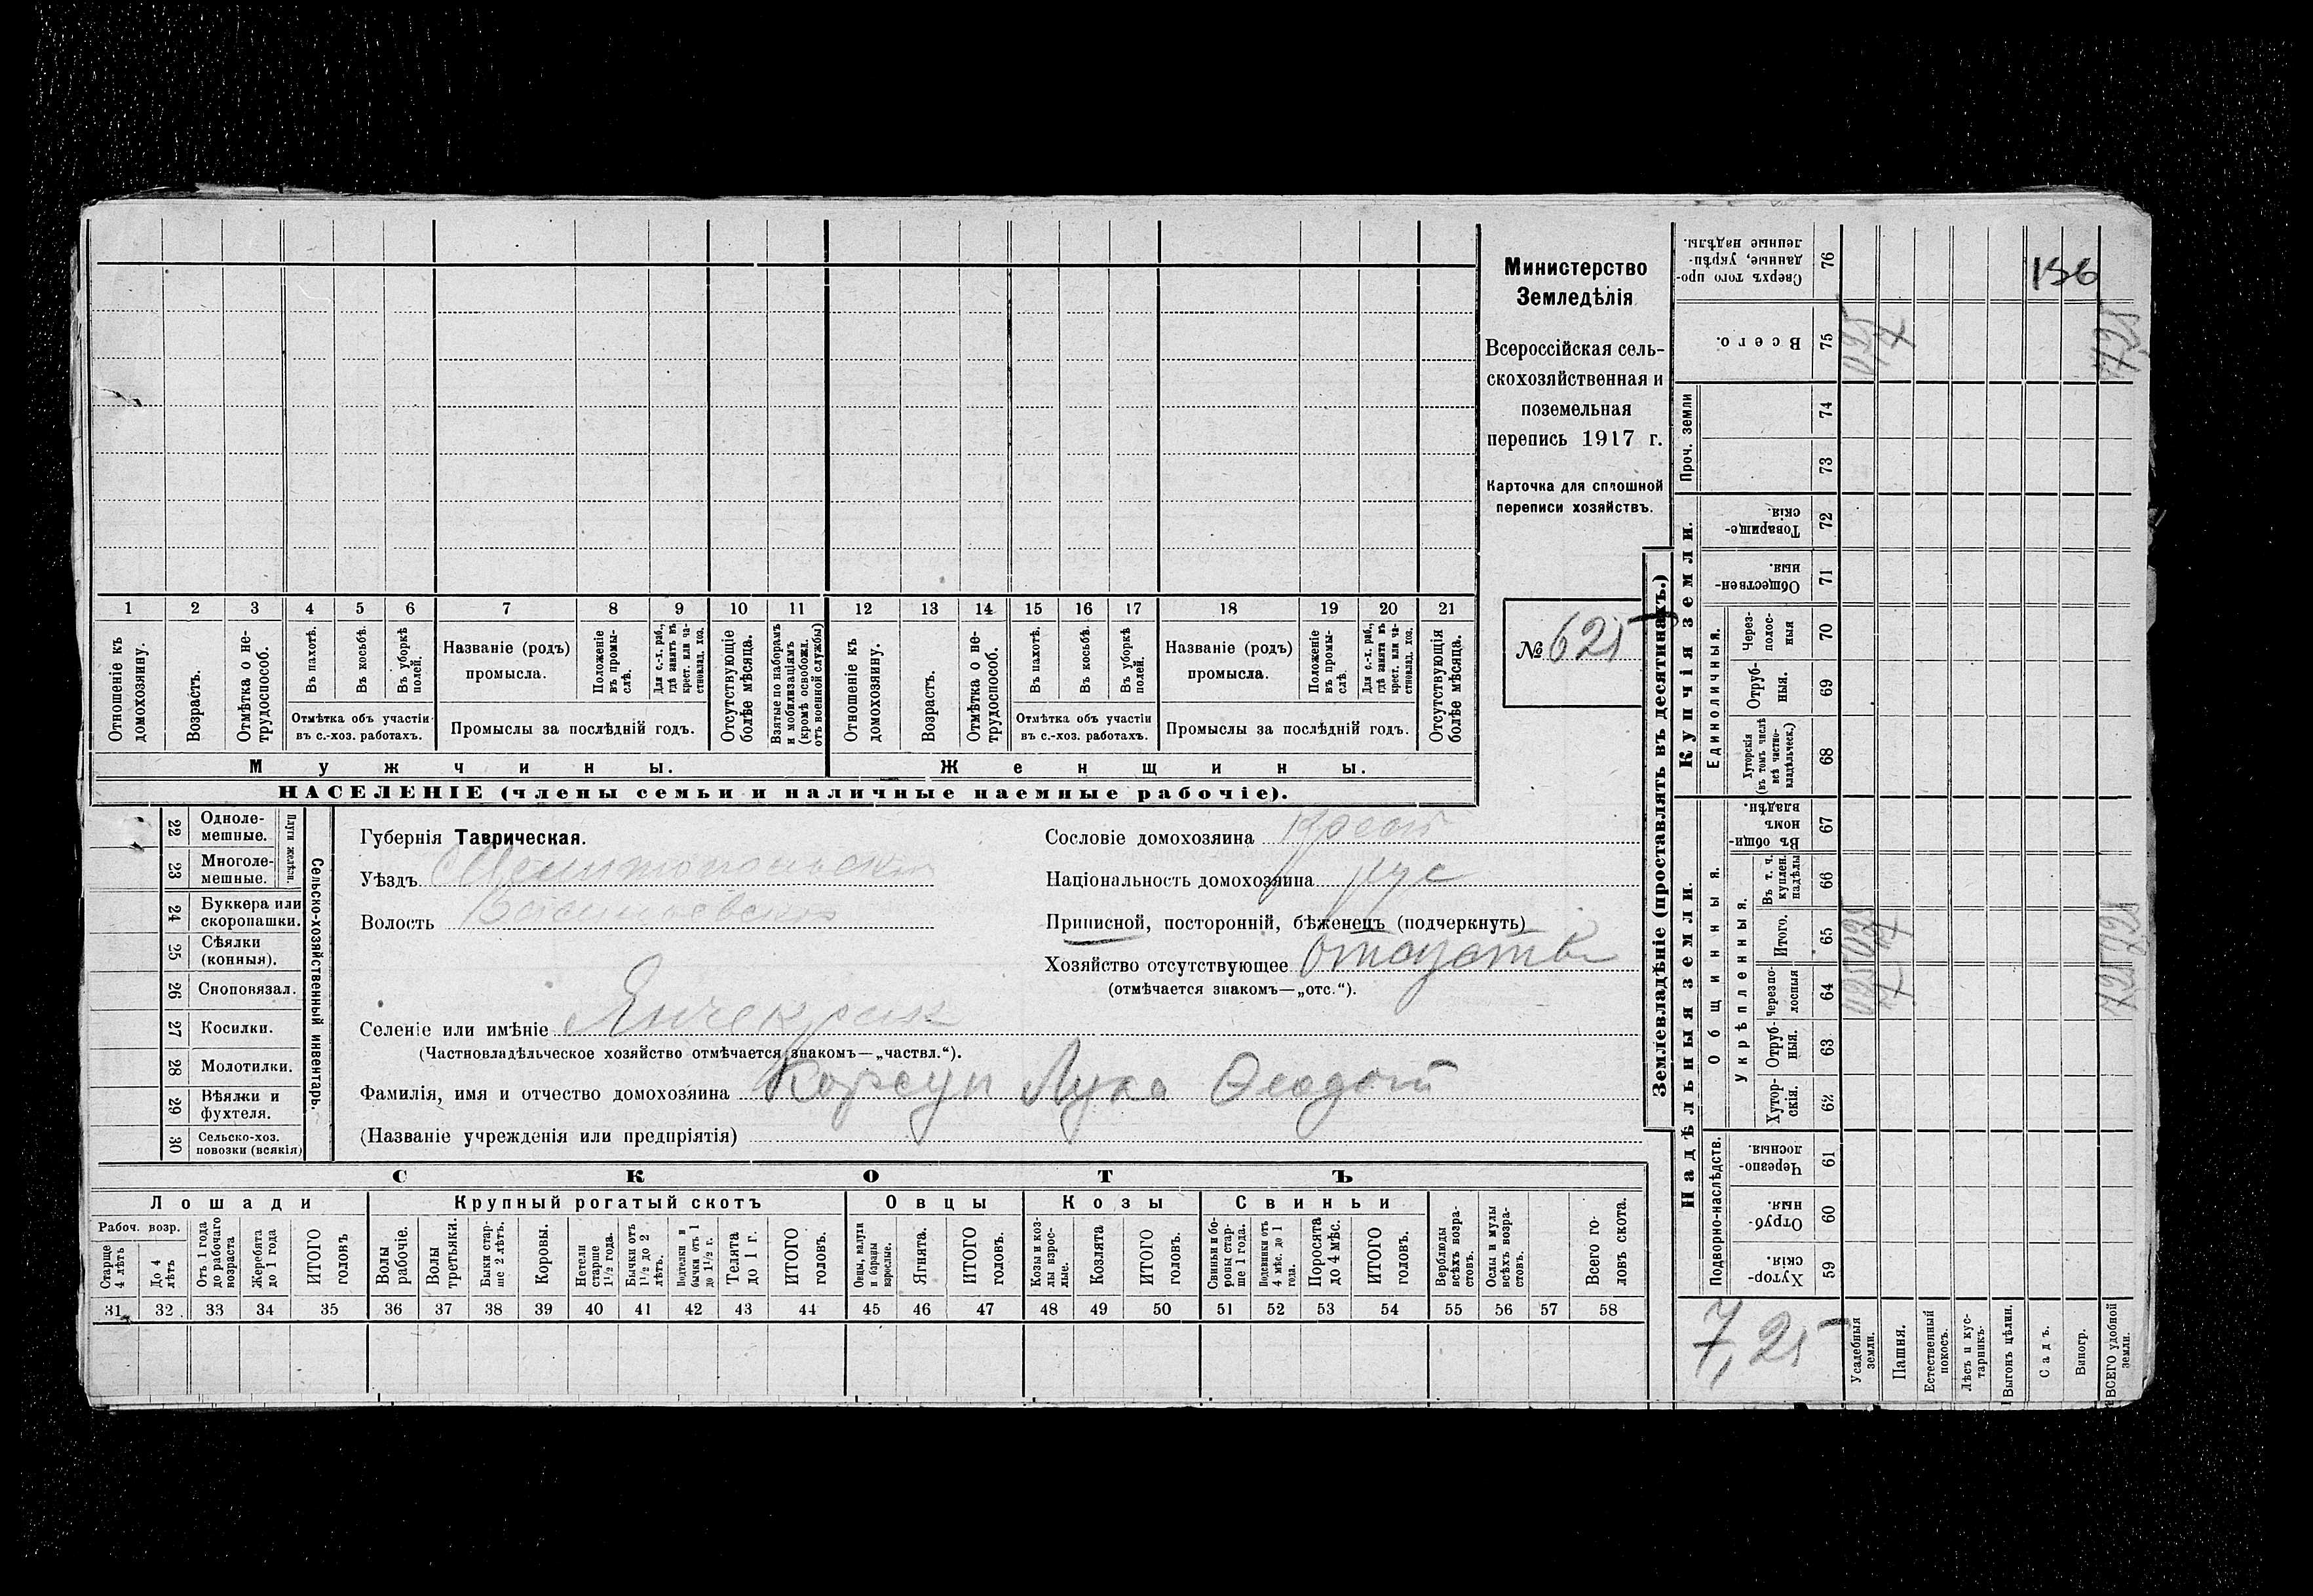 Министерство
Земледѣлія
Всероссійская сель-
скохозяйственная и
поземельная
перепись 1917 г.
Карточка для сплошной
переписи хозяйствъ.
№ 625
156
1 2 3 4 5 6 7 8 9 10 11 12 13 14 15 16 17 18 19 20 21
Отношеніе къ домохозяину.
Возрастъ.
Отмѣтка о не-трудоспособ.
Въ пахотѣ.
Въ косьбѣ.
Въ уборкѣ полей.
Отмѣтка объ участіи
въ с.-хоз. работахъ.
Названіе (родъ)
промысла.
Положеніе въ промы-слѣ.
Для с.-х. раб., гдѣ занятъ въ крест. или ча-стновлад. хоз.
Промыслы за послѣдній годъ.
Отсутствующіе болѣе мѣсяца.
Взятые по наборамъ и мобилизаціямъ (кромѣ освобожд. отъ военной службы)
Отношеніе къ домохозяину.
Возрастъ.
Отмѣтка о не-трудоспособ.
Въ пахотѣ.
Въ косьбѣ.
Въ уборкѣ полей.
Отмѣтка объ участіи
въ с.-хоз. работахъ.
Названіе (родъ)
промысла.
Положеніе въ промы-слѣ.
Для с.-х. раб., гдѣ занята въ крест. или ча-стновлад. хоз.
Промыслы за послѣдній годъ.
Отсутствующія болѣе мѣсяца.
Мужчины. Женщины.
НАСЕЛЕНІЕ (члены семьи и наличные наемные рабочіе).
22 Одноле-мешные.
23 Многоле-мешные.
Плуги желѣзн.
24 Буккера или скоропашки.
25 Сѣялки (конныя).
26 Сноповязал.
27 Косилки.
28 Молотилки.
29 Вѣялки и фухтеля.
30 Сельско-хоз. повозки (всякія)
Сельско-хозяйственный инвентарь.
Губернія Таврическая.
Уѣздъ Мелитопольскій
Волость Васильевская
Сословіе домохозяина крест
Національность домохозяина рус
Приписной, посторонній, бѣженецъ (подчеркнуть)
Хозяйство отсутствующее отсутств
(отмѣчается знакомъ—„отс.“).
Селеніе или имѣніе Янчекрак
(Частновладѣльческое хозяйство отмѣчается знакомъ—„частвл.“).
Фамилія, имя и отчество домохозяина Корсун Лука Ѳеодот
(Названіе учрежденія или предпріятія)
СКОТЪ
Лошади Крупный рогатый скотъ Овцы Козы Свиньи
Рабоч. возр.
Старше 4 лѣтъ
До 4 лѣтъ
Отъ 1 года до рабочаго возраста
Жеребята до 1 года
ИТОГО головъ
Волы рабочіе.
Волы третьяки.
Быки стар-ше 2 лѣтъ.
Коровы.
Нетели старше 1 1/2 года.
Бычки отъ 1 1/2 до 2 лѣтъ.
Подтелки и бычки отъ 1 до 1 1/2 г.
Телята до 1 г.
ИТОГО головъ.
Овцы, валухи и бараны взрослые.
Ягнята.
ИТОГО головъ.
Козы и коз-лы взрос-лые.
Козлята
ИТОГО головъ.
Свиньи и бо-ровы стар-ше 1 года.
Подсвинки отъ 4 мѣс. до 1 года.
Поросята до 4 мѣс.
ИТОГО головъ.
Верблюды всѣхъ возра-стовъ.
Ослы и мулы всѣхъ возра-стовъ.
Всего го-ловъ скота.
31 32 33 34 35 36 37 38 39 40 41 42 43 44 45 46 47 48 49 50 51 52 53 54 55 56 57 58
Землевладѣніе (проставлять въ десятинахъ.)
Надѣльныя земли. Купчія земли. Проч. земли
Подворно-наслѣдств.
Общинныя.
Укрѣпленныя.
Единоличныя.
76 Сверхъ того про-данные, укрѣп-ленные надѣлы.
75 Всего. 0,25 7 7,25
74
73
72 Товарище-скія.
71 Обществен-ныя.
70 Через-полос-ныя
69 Отруб-ныя.
68 Хуторскія (въ томъ числѣ всѣ частно-владѣльческ.)
67 Въ общин-номъ владѣн.
66 Въ т. ч. куплен. надѣлы
65 Итого. 0,25 7 7,25
64 Черезпо-лосныя 0,25 7 7,25
63 Отруб-ныя.
62 Хутор-скія.
61 Черезпо-лосныя.
60 Отруб-ныя.
59 Хутор-скія.
7,25
Усадебныя земли.
Пашня.
Естественный покосъ.
Лѣсъ и кус-тарникъ.
Выгонъ цѣлин.
Садъ.
Виногр.
ВСЕГО удобной земли.